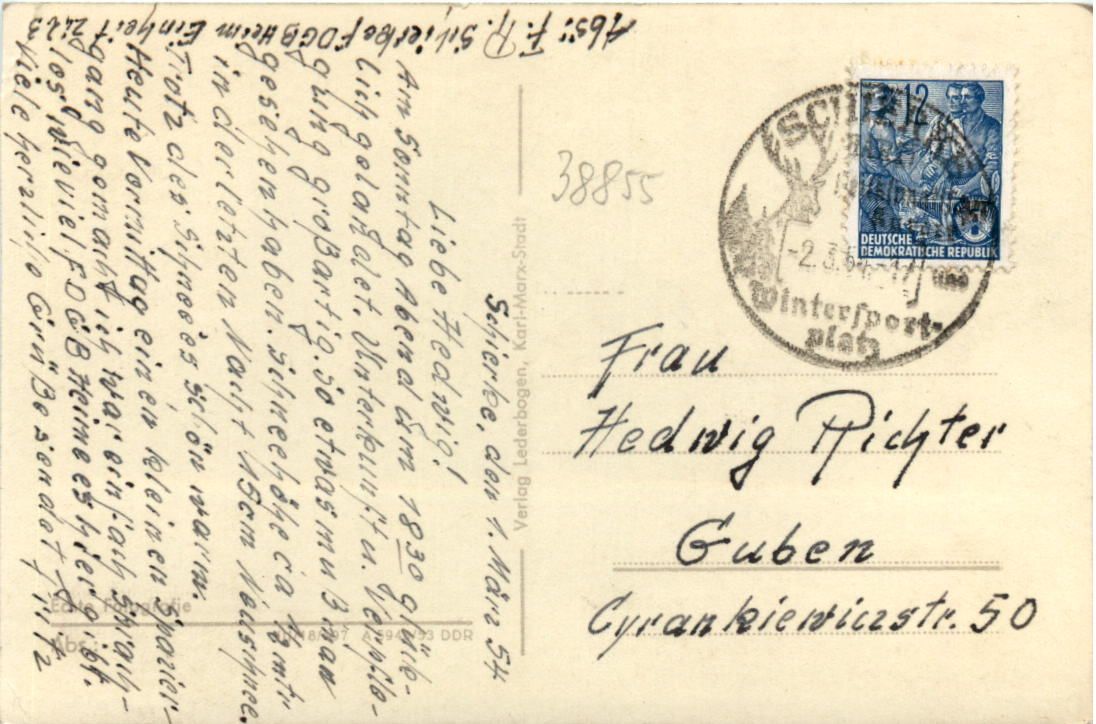 Schierke, den 1. März 54
Liebe Hedwig!
Am Sonntag Abend um 18 30 glück-
lich gelandet. Unterkunft u. Verpfle-
gung großartig. So etwas muß man
gesehen haben. Schneehöhe ca 1 mtr
in der letzten Nacht 15cm Neuschnee.
Trotz des Schnees schön warm.
Heute Vormittag einen kleinen Spazier-
gang gemacht ich war einfach sprach-
los, wieviel FDGB Heime es hier gibt.
Viele herzliche Grüße sendet
Abs: F. R. Schierke FDGB Heim Einheit
Verlag Lederbogen, Karl-Marx-Stadt
Echte Fotografie
Abs.:
DDR
38855
12
DEUTSCHE
DEMOKRATISCHE REPUBLIK
SCHIERKE
-2.3.54.-17
und
Wintersport-
platz
Frau
Hedwig Richter
Guben
Cyrankiewiczstr. 50